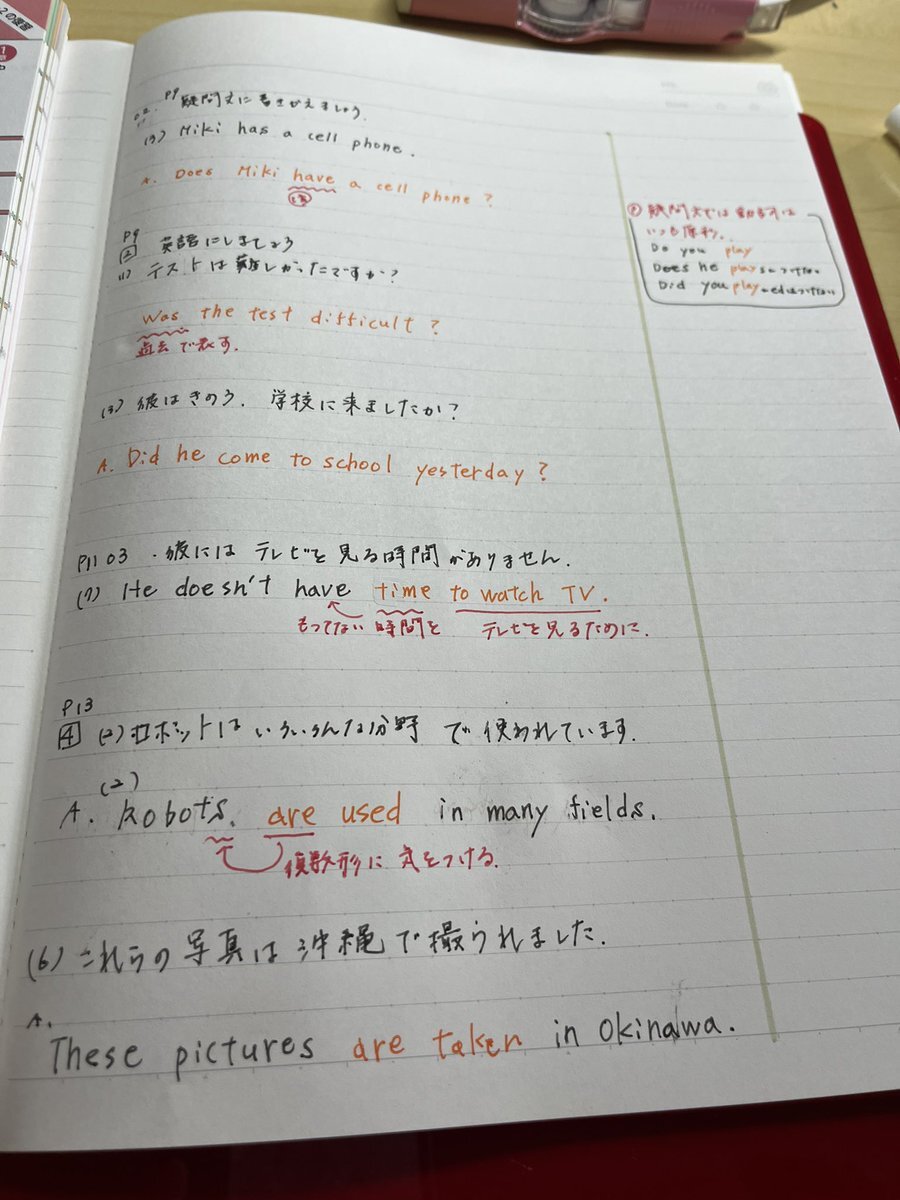 P9 疑問文に書きかえましょう
(3) Miki has a cell phone.
A. Does Miki have a cell phone?
P9
2 英語にしましょう
(1) テストは難しかったですか?
Was the test difficult?
過去で表す.
(3) 彼はきのう、学校に来ましたか?
A. Did he come to school yesterday?
P11 03 . 彼には テレビを見る時間がありません.
(7) He doesn't have time to watch TV.
もってない 時間を テレビを見るために.
P13
4 (2) ロボットは いろいろんな分野 で 使われています.
(2)
A. Robots. are used in many fields.
複数形に気をつける.
(6) これらの写真は沖縄で撮られました.
A.
These pictures are taken in Okinawa.
疑問文では動詞は
いつも原形.
Do you play
Does he play sはつけない
Did you play edはつけない